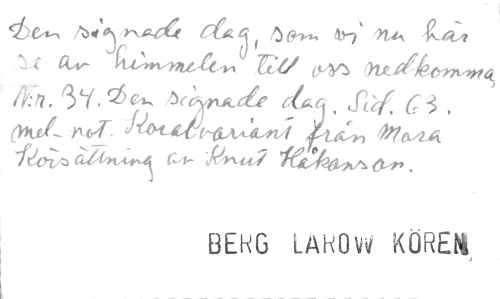 Den signade dag, som vi nu här
se av himmelen till oss nedkomma,
N:r. 34. Den signade dag. Sid. 63.
mel-not. Koralvariant från Mora
Körsättning av Knut Håkanson.
BERG LAROW KÖREN